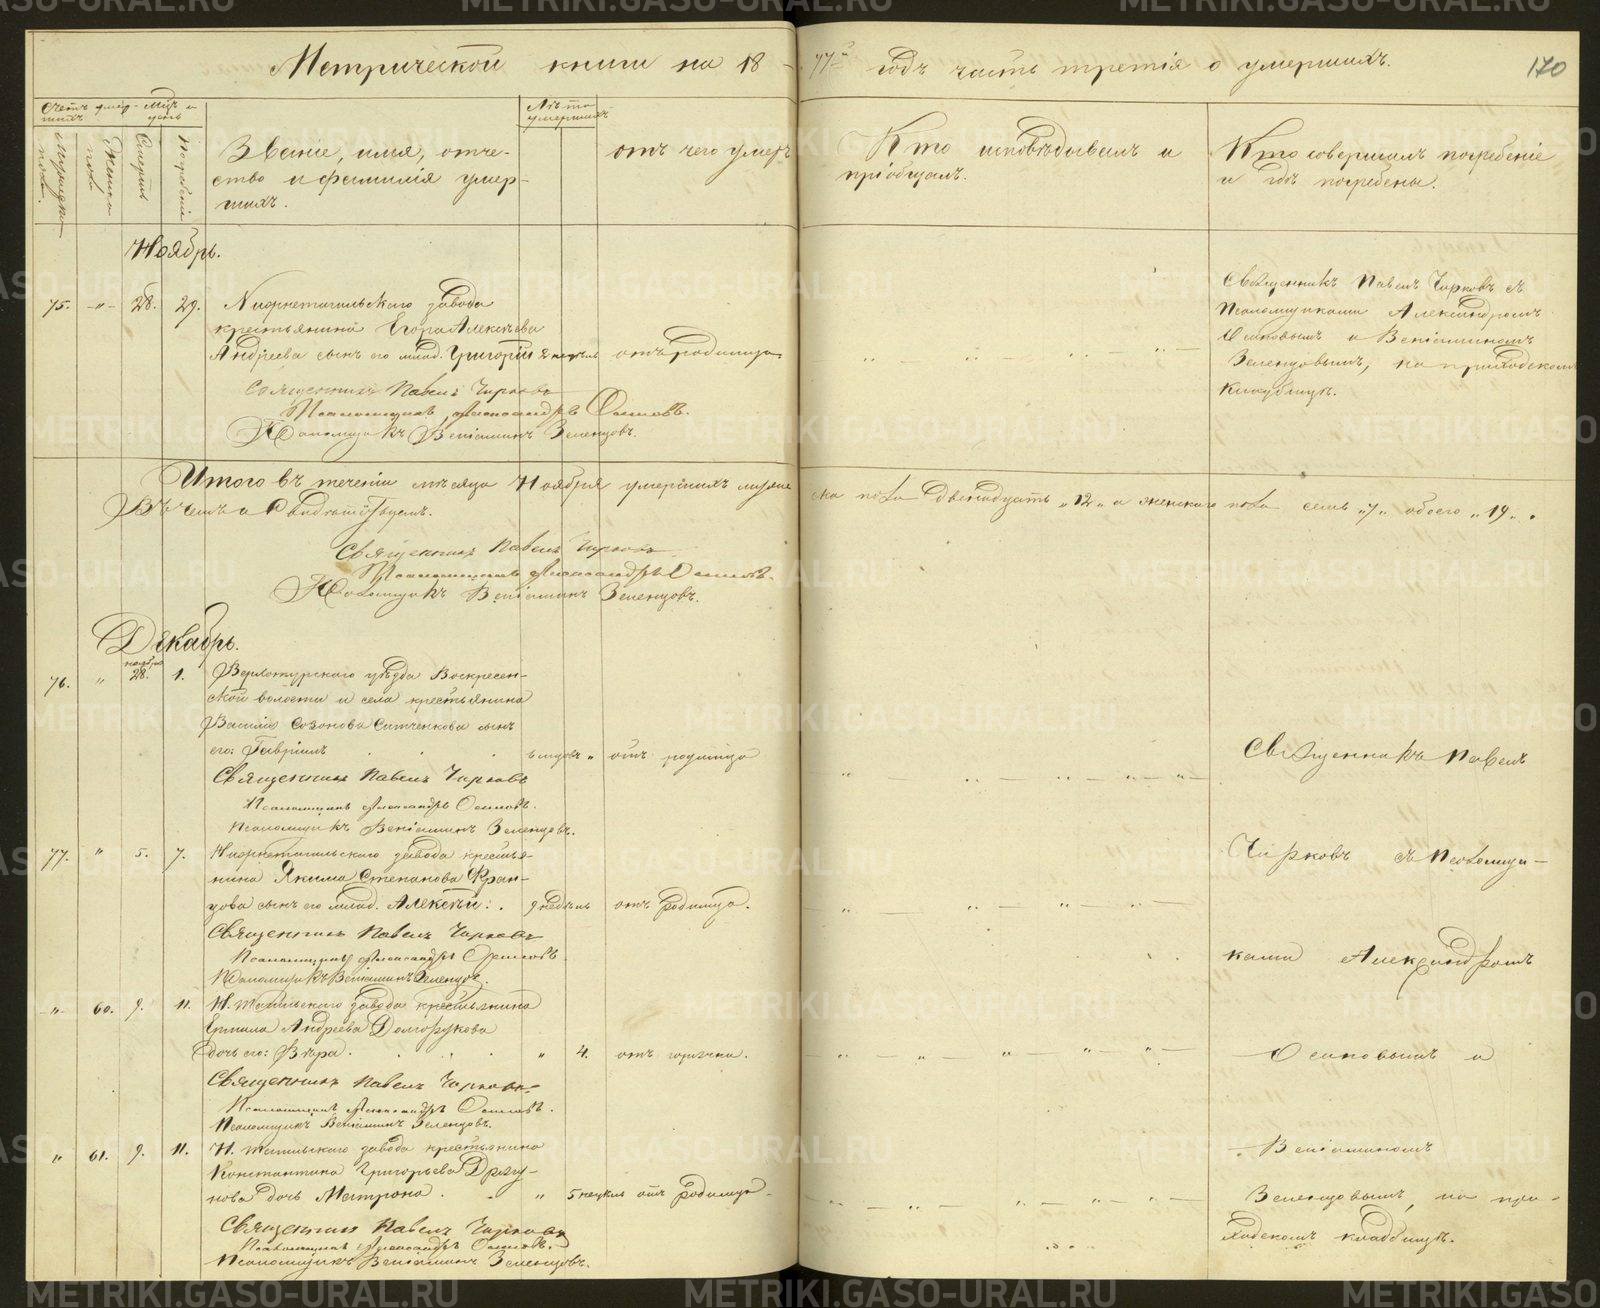 Метрической книги на 18
77й годъ часть третія о умершихъ.
170
Счетъ умер-
шихъ
Мѣс. и
день
Мужеска
пола.
Женска
пола
Смерти
Погребенія
Званіе, имя, отче-
ство и фамилія умер-
шихъ.
Лѣта
умершихъ
отъ чего умеръ
Кто исповѣдывалъ и
пріобщалъ.
Кто совершалъ погребеніе
и гдѣ погребены.
Ноябрь.
75. -"- 28. 29. Нижнетагильскаго завода
крестьянина Егора Алексѣева
Андреева сынъ его млад. Григорій 2 недѣль отъ родимца
Священникъ Павелъ Чирковъ
Псаломщикъ Александръ Осиповъ.
Псаломщикъ Веніаминъ Зеленцовъ.
Священникъ Павелъ Чирковъ съ
Псаломщиками Александромъ
Осиповымъ и Веніаминомъ
Зеленцовымъ, на приходскомъ
кладбищѣ.
Итого въ теченіи мѣсяца Ноября умершихъ муже
ска пола двенадцать "12" а женскаго пола семь "7" обоего "19".
Въ чемъ и Свидѣтельствуемъ.
Священникъ Павелъ Чирковъ
Псаломщикъ Александръ Осиповъ.
Псаломщикъ Веніаминъ Зеленцовъ.
Декабрь.
76. " ноября 28. 1. Верхотурскаго уѣзда Воскресен-
ской волости и села крестьянина
Василія Созонова Ситченкова сынъ
его: Гавріилъ отъ родимца
Священникъ Павелъ Чирковъ
Псаломщикъ Александръ Осиповъ.
Псаломщикъ Веніаминъ Зеленцовъ.
77. " 5. 7. Нижнетагильскаго завода кресть-
янина Якима Степанова Фран-
цова сынъ его млад. Алексѣй. 9 недѣль отъ родимца.
Священникъ Павелъ Чирковъ
Псаломщикъ Александръ Осиповъ
Псаломщикъ Веніаминъ Зеленцовъ.
-"- 60. 9. 11. Н. Тагильскаго завода крестьянина
Ермила Андреева Долгорукова
дочь его: Вѣра. " 4. отъ горячки.
Священникъ Павелъ Чирковъ
Псаломщикъ Александръ Осиповъ.
Псаломщикъ Веніаминъ Зеленцовъ.
" 61. 9. 11. Н. Тагильскаго завода крестьянина
Константина Григорьева Драгу-
нова дочь Матрона. " 5 недѣль отъ родимца.
Священникъ Павелъ Чирковъ
Псаломщикъ Александръ Осиповъ.
Псаломщикъ Веніаминъ Зеленцовъ.
Священникъ Павелъ
Чирковъ съ Псаломщи-
ками Александромъ
Осиповымъ и
Веніаминомъ
Зеленцовымъ, на при-
ходскомъ кладбищѣ.
METRIKI.GASO-URAL.RU